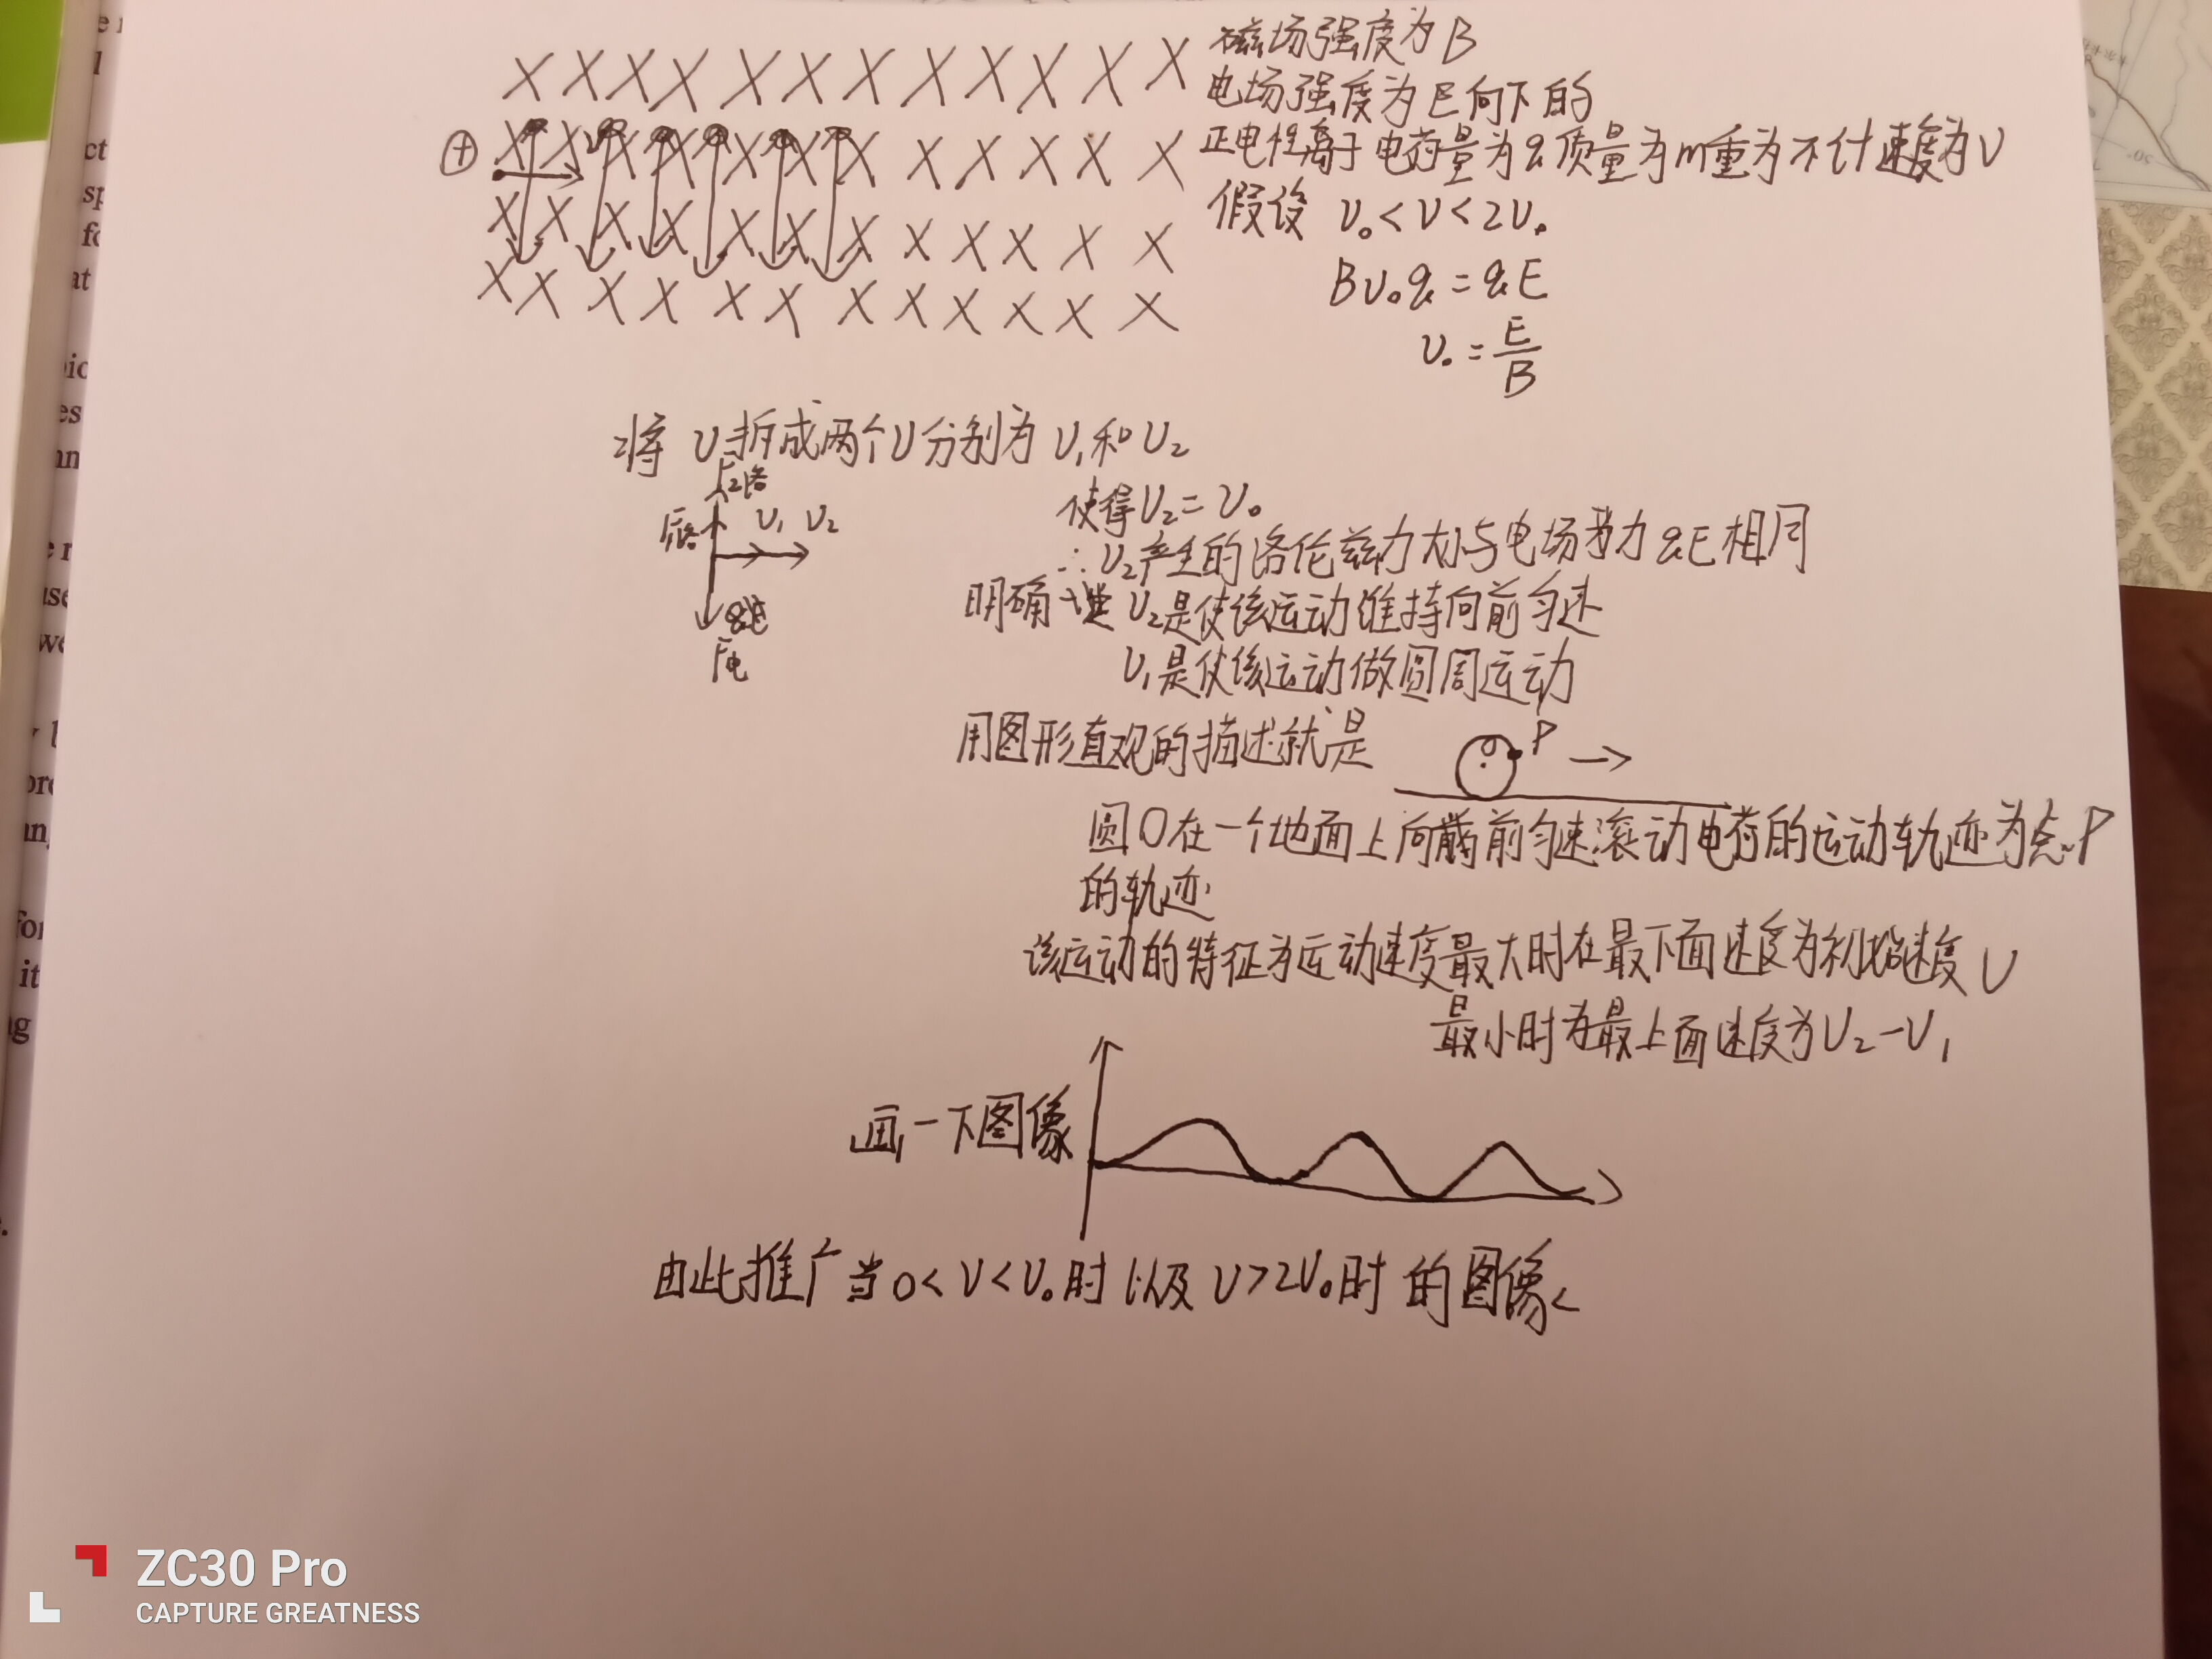 磁场强度为B
电场强度为E向下的
⊕ 正电性离子电荷量为q质量为m重为不计速度为v
假设 v₀<v<2v₀
Bv₀q=qE
v₀=E/B
将v拆成两个v分别为v₁和v₂
F₂洛
F₁洛 v₁ v₂
qE
F电
使得v₂=v₀
∴v₂产生的洛伦兹力大小与电场力qE相同
明确一些 v₂是使该运动维持向前匀速
v₁是使该运动做圆周运动
用图形直观的描述就是 P
圆O在一个地面上向前匀速滚动电荷的运动轨迹为点P
的轨迹
该运动的特征为运动速度最大时在最下面速度为初始速度v
最小时为最上面速度为v₂-v₁
画一下图像
由此推广当0<v<v₀时以及v>2v₀时的图像
ZC30 Pro
CAPTURE GREATNESS